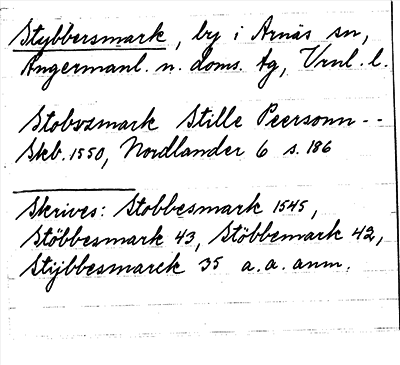 Stybbersmark, by i Arnäs sn,
Ångermanl. n. doms. tg, Vrnl. l.
Stobszmark Stille Peersonn --
Skb. 1550, Nordlander 6 s. 186
Skrives: Stobbesmark 1545,
Stöbbesmark 43, Stöbbemark 42,
Stÿbbesmarck 35 a.a. anm.